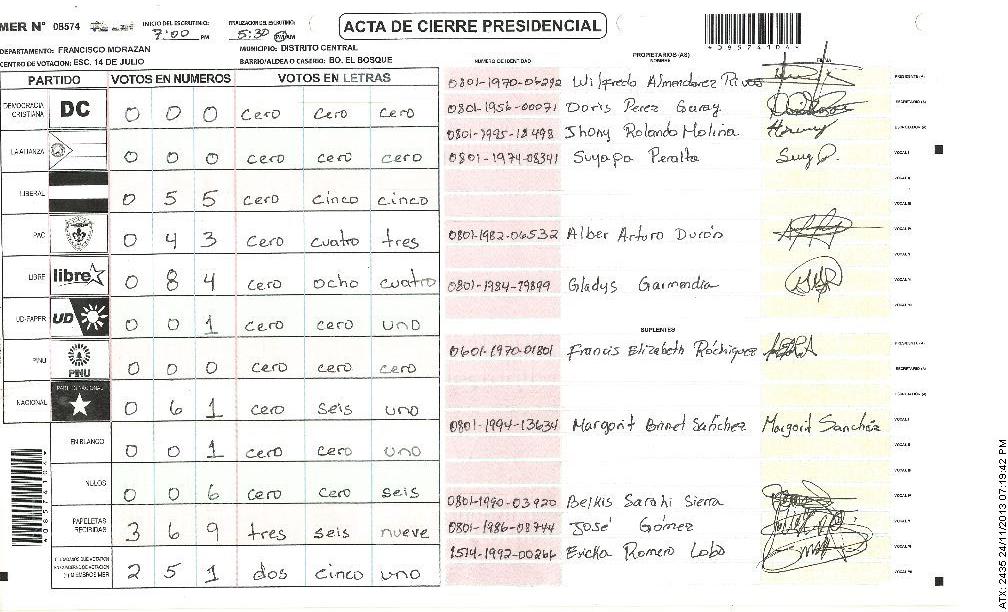 MER N° 08574
INICIO DEL ESCRUTINIO: 7:00 PM
FINALIZACION DEL ESCRUTINIO: 5:30 PM AM
ACTA DE CIERRE PRESIDENCIAL
*08574104*
DEPARTAMENTO: FRANCISCO MORAZAN
MUNICIPIO: DISTRITO CENTRAL
CENTRO DE VOTACION: ESC. 14 DE JULIO
BARRIO/ALDEA O CASERIO: BO. EL BOSQUE
PARTIDO VOTOS EN NUMEROS VOTOS EN LETRAS
DEMOCRACIA CRISTIANA DC 0 0 0 cero cero cero
LA ALIANZA 0 0 0 cero cero cero
LIBERAL 0 5 5 cero cinco cinco
PAC 0 4 3 cero cuatro tres
LIBRE libre 0 8 4 cero ocho cuatro
UD-FAPER UD 0 0 1 cero cero uno
PINU PINU 0 0 0 cero cero cero
NACIONAL PARTIDO NACIONAL 0 6 1 cero seis uno
EN BLANCO 0 0 1 cero cero uno
NULOS 0 0 6 cero cero seis
PAPELETAS RECIBIDAS 3 6 9 tres seis nueve
CIUDADANOS QUE VOTARON EN CUADERNO DE VOTACION (+) MIEMBROS MER 2 5 1 dos cinco uno
NUMERO DE IDENTIDAD PROPIETARIOS(AS) NOMBRE FIRMA
0801-1970-06292 Wilfredo Almendarez Rivas PRESIDENTE (A)
0801-1956-00071 Doris Perez Garay SECRETARIO (A)
0801-1995-18498 Jhony Rolando Molina ESCRUTADOR (A)
0801-1974-08341 Suyapa Peralta VOCAL I
VOCAL II
VOCAL III
0801-1982-06532 Alber Arturo Durón VOCAL IV
VOCAL V
0801-1984-79899 Gladys Garmendia VOCAL VI
SUPLENTES
0601-1970-01801 Francis Elizabeth Rodriguez PRESIDENTE (A)
SECRETARIO (A)
0801-1994-13634 Margorit Bonet Sánchez Margorit Sanchez VOCAL I
VOCAL II
VOCAL III
0801-1990-03920 Belkis Sarahi Sierra VOCAL IV
0801-1986-08744 José Gómez VOCAL V
1514-1992-00266 Ericka Romero Lobo
*08574104*
ATX: 2435 24/11/2013 07:19:42 PM